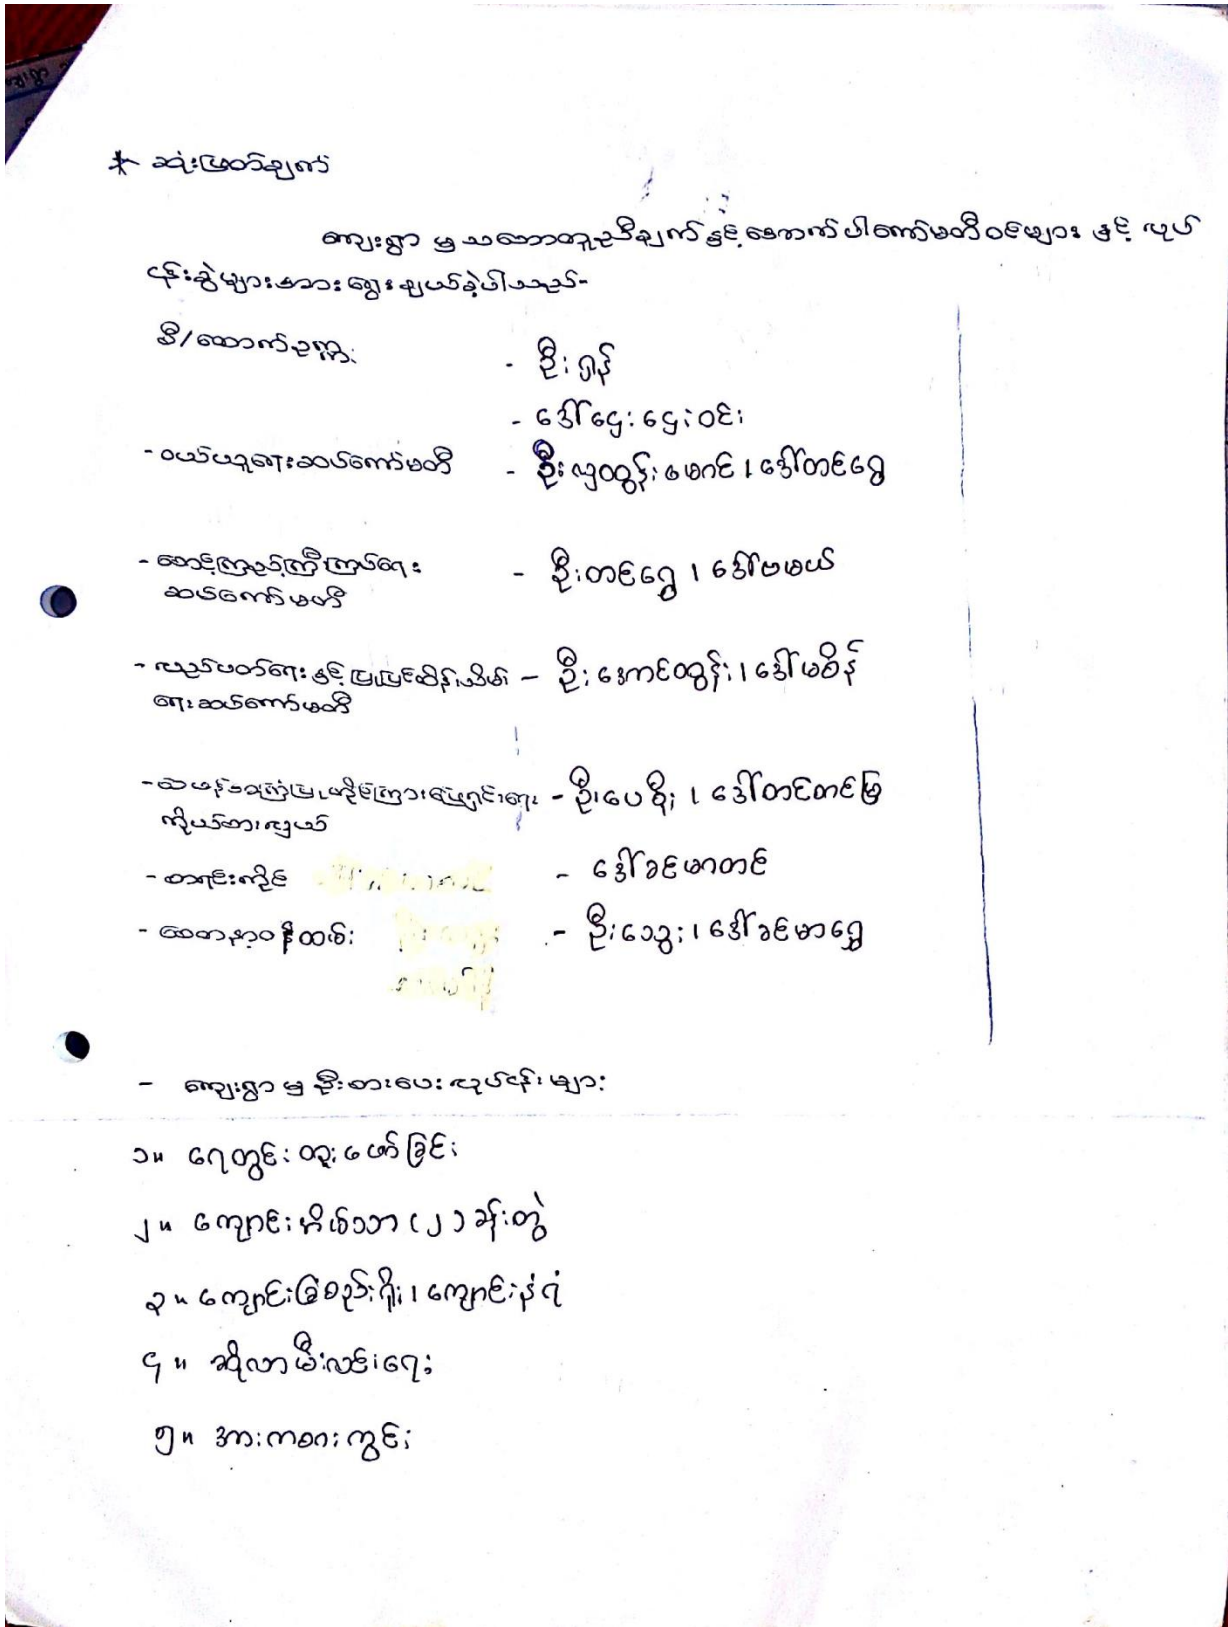 * ဆုံးဖြတ်ချက်
ကျေးရွာ မှ သဘောတူညီချက် နှင့် အောက်ပါကော်မတီဝင်များ နှင့် လုပ်
ငန်းခွဲများအား ရွေးချယ်ခဲ့ပါသည်-
စီ/ထောက်ဥက္ကဋ္ဌ
- ဦးရှန်
- ဒေါ်ဌေးဌေးဝင်း
- ဝယ်ယူရေးဆပ်ကော်မတီ - ဦးလှထွန်းမောင် ၊ ဒေါ်တင်ရွှေ
- စောင့်ကြည့်ကြီးကြပ်ရေး - ဦးတင်ရွှေ ၊ ဒေါ်ဗမယ်
ဆပ်ကော်မတီ
- လည်ပတ်ရေး နှင့် ပြုပြင်ထိန်းသိမ်း - ဦးအောင်ထွန်း ၊ ဒေါ်မစိန်
ရေးဆပ်ကော်မတီ
- ဖြေရှင်းရေး - ဦးပေစိုး ၊ ဒေါ်တင်တင်မြ
ကိုယ်စားလှယ်
- စာရင်းကိုင် - ဒေါ်ခင်မာတင်
- စေတနာ့ဝန်ထမ်း - ဦးသွေး ၊ ဒေါ်ခင်မာရွှေ
- ကျေးရွာ မှ ဦးစားပေး လုပ်ငန်း များ
၁။ ရေတွင်း တူးဖော်ခြင်း
၂။ ကျောင်းအိမ်သာ (၂) ခန်းတွဲ
၃။ ကျောင်းခြံစည်းရိုး ၊ ကျောင်းနံရံ
၄။ ဆိုလာမီးလင်းရေး
၅။ အားကစားကွင်း